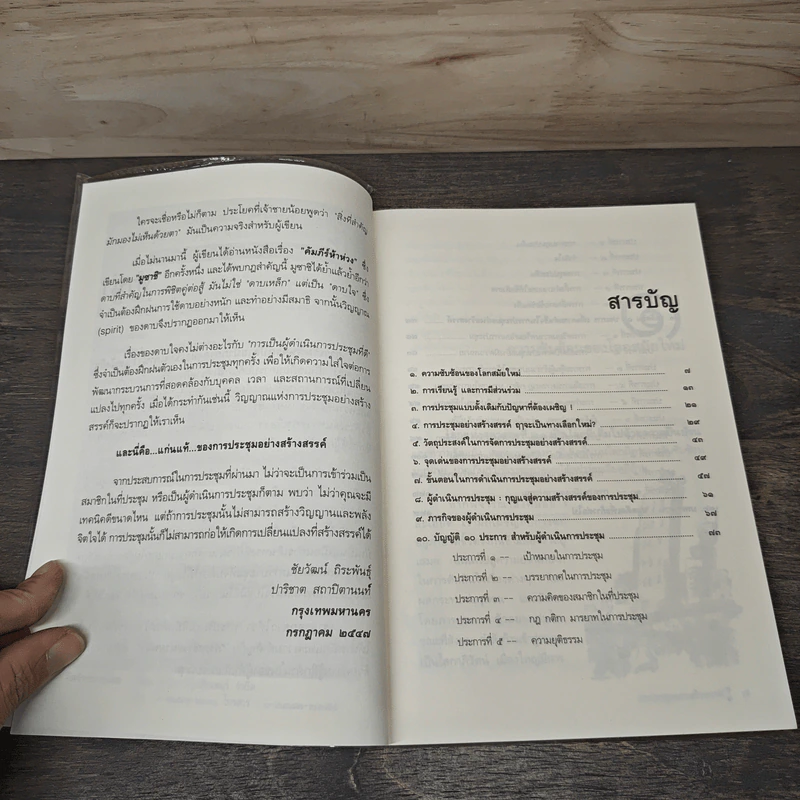 ใครจะเชื่อหรือไม่ก็ตาม ประโยคที่เจ้าชายน้อยพูดว่า "สิ่งที่สำคัญ
มักมองไม่เห็นด้วยตา" มันเป็นความจริงสำหรับผู้เขียน
เมื่อไม่นานมานี้ ผู้เขียนได้อ่านหนังสือเรื่อง "คัมภีร์ห้าห่วง" ซึ่ง
เขียนโดย "มูซาชิ" อีกครั้งหนึ่ง และได้พบกฎสำคัญนี้ มูซาชิได้ย้ำแล้วย้ำอีกว่า
ดาบที่สำคัญในการพิชิตคู่ต่อสู้ มันไม่ใช่ "ดาบเหล็ก" แต่เป็น "ดาบใจ" ซึ่ง
จำเป็นต้องฝึกฝนการใช้ดาบอย่างหนัก และทำอย่างมีสมาธิ จากนั้นวิญญาณ
(spirit) ของดาบจึงปรากฏออกมาให้เห็น
เรื่องของดาบใจคงไม่ต่างอะไรกับ "การเป็นผู้ดำเนินการประชุมที่ดี"
ซึ่งจำเป็นต้องฝึกฝนตัวเองในการประชุมทุกครั้ง เพื่อให้เกิดความใส่ใจต่อการ
พัฒนากระบวนการที่สอดคล้องกับบุคคล เวลา และสถานการณ์ที่เปลี่ยน
แปลงไปทุกครั้ง เมื่อได้กระทำเช่นนี้ วิญญาณแห่งการประชุมอย่างสร้าง
สรรค์ก็จะปรากฏให้เราเห็น
และนี่คือ...แก่นแท้...ของการประชุมอย่างสร้างสรรค์
จากประสบการณ์ในการประชุมที่ผ่านมา ไม่ว่าจะเป็นการเข้าร่วมเป็น
สมาชิกในที่ประชุม หรือเป็นผู้ดำเนินการประชุมก็ตาม พบว่า ไม่ว่าคุณจะมี
เทคนิคดีขนาดไหน แต่ถ้าการประชุมนั้นไม่สามารถสร้างวิญญาณและพลัง
จิตใจได้ การประชุมนั้นก็ไม่สามารถก่อให้เกิดการเปลี่ยนแปลงที่สร้างสรรค์ได้
ชัยวัฒน์ ถิระพันธุ์
ปาริชาต สถาปิตานนท์
กรุงเทพมหานคร
กรกฎาคม ๒๕๔๗
สารบัญ
๑. ความซับซ้อนของโลกสมัยใหม่ ๗
๒. การเรียนรู้ และการมีส่วนร่วม ๑๓
๓. การประชุมแบบดั้งเดิมกับปัญหาที่ต้องเผชิญ ! ๒๑
๔. การประชุมอย่างสร้างสรรค์ ฤๅจะเป็นทางเลือกใหม่? ๒๗
๕. วัตถุประสงค์ในการจัดการประชุมอย่างสร้างสรรค์ ๔๓
๖. จุดเด่นของการประชุมอย่างสร้างสรรค์ ๔๙
๗. ขั้นตอนในการดำเนินการประชุมอย่างสร้างสรรค์ ๕๗
๘. ผู้ดำเนินการประชุม : กุญแจสู่ความสร้างสรรค์ของการประชุม ๖๑
๙. ภารกิจของผู้ดำเนินการประชุม ๖๗
๑๐. บัญญัติ ๑๐ ประการ สำหรับผู้ดำเนินการประชุม ๗๓
ประการที่ ๑ -- เป้าหมายในการประชุม
ประการที่ ๒ -- บรรยากาศในการประชุม
ประการที่ ๓ -- ความคิดของสมาชิกในที่ประชุม
ประการที่ ๔ -- กฎ กติกา มารยาทในการประชุม
ประการที่ ๕ -- ความยุติธรรม